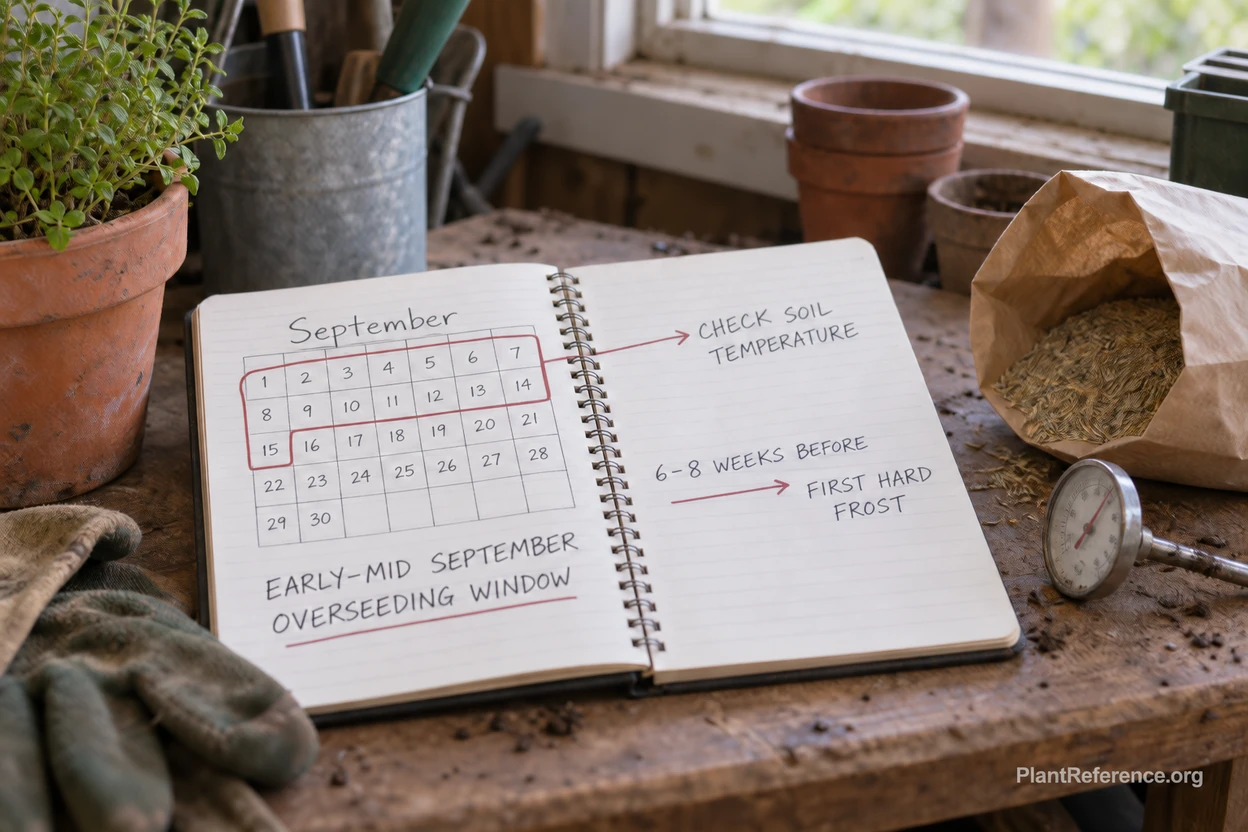 September
1 2 3 4 5 6 7
8 9 10 11 12 13 14
15 16 17 18 19 20 21
22 23 24 25 26 27 28
29 30
EARLY-MID SEPTEMBER
OVERSEEDING WINDOW
CHECK SOIL
TEMPERATURE
6-8 WEEKS BEFORE
FIRST HARD
FROST
PlantReference.org